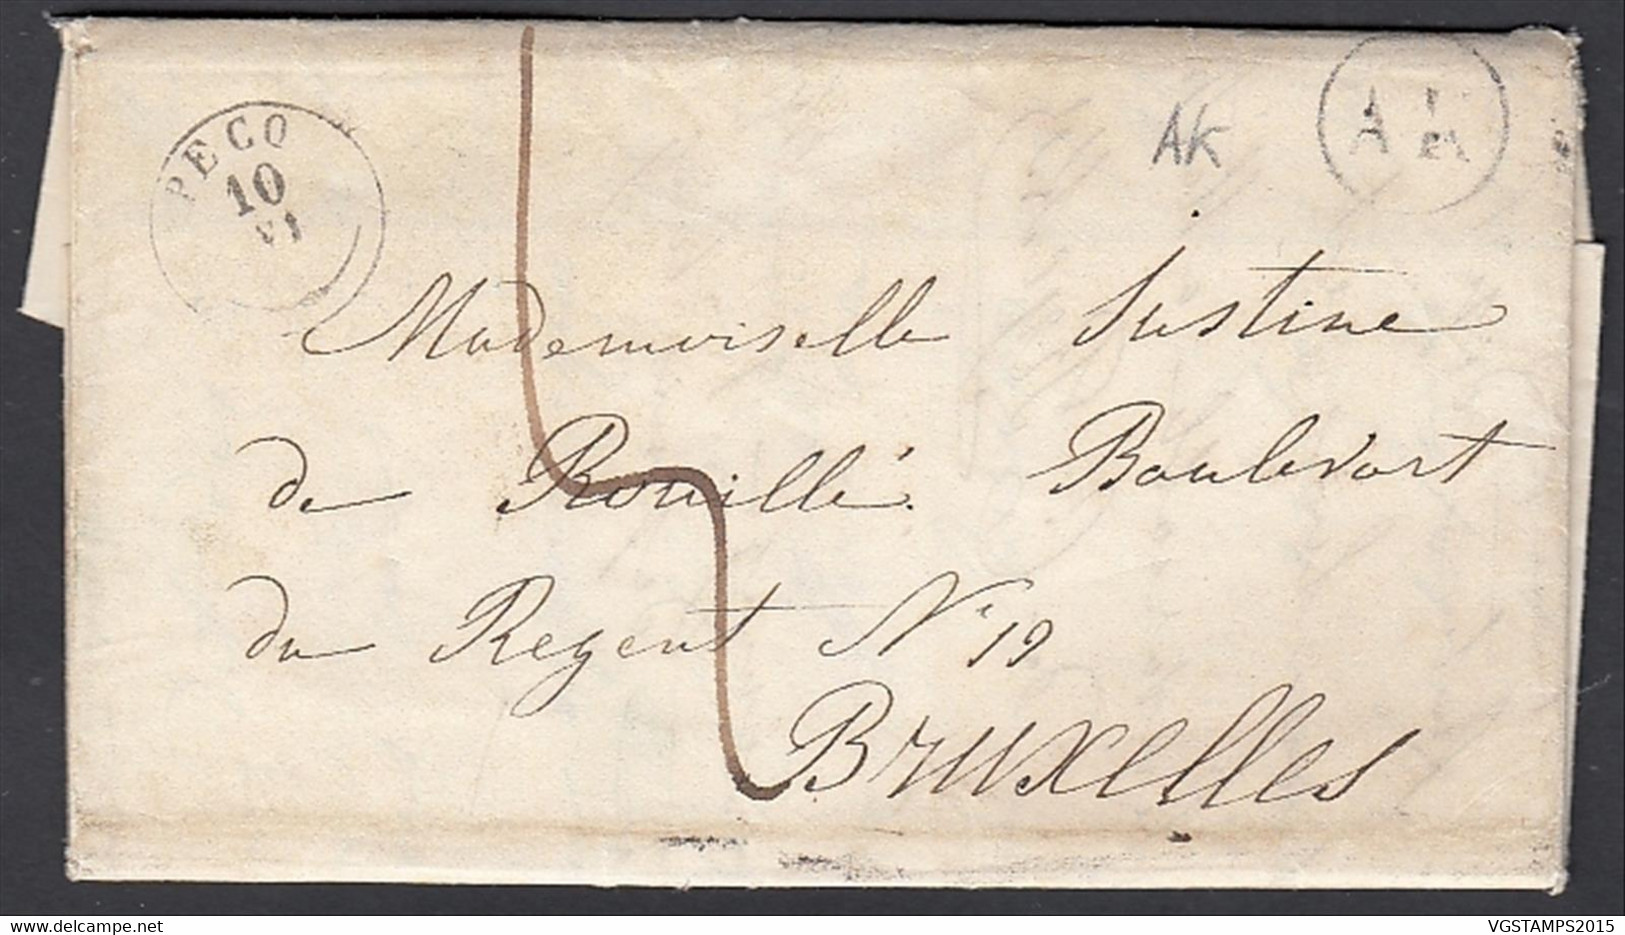 PECQ
10
VI
AK
A K
Mademoiselle Justine
de Rouillé. Boulevart
du Regent N° 19
Bruxelles
VGSTAMPS2015